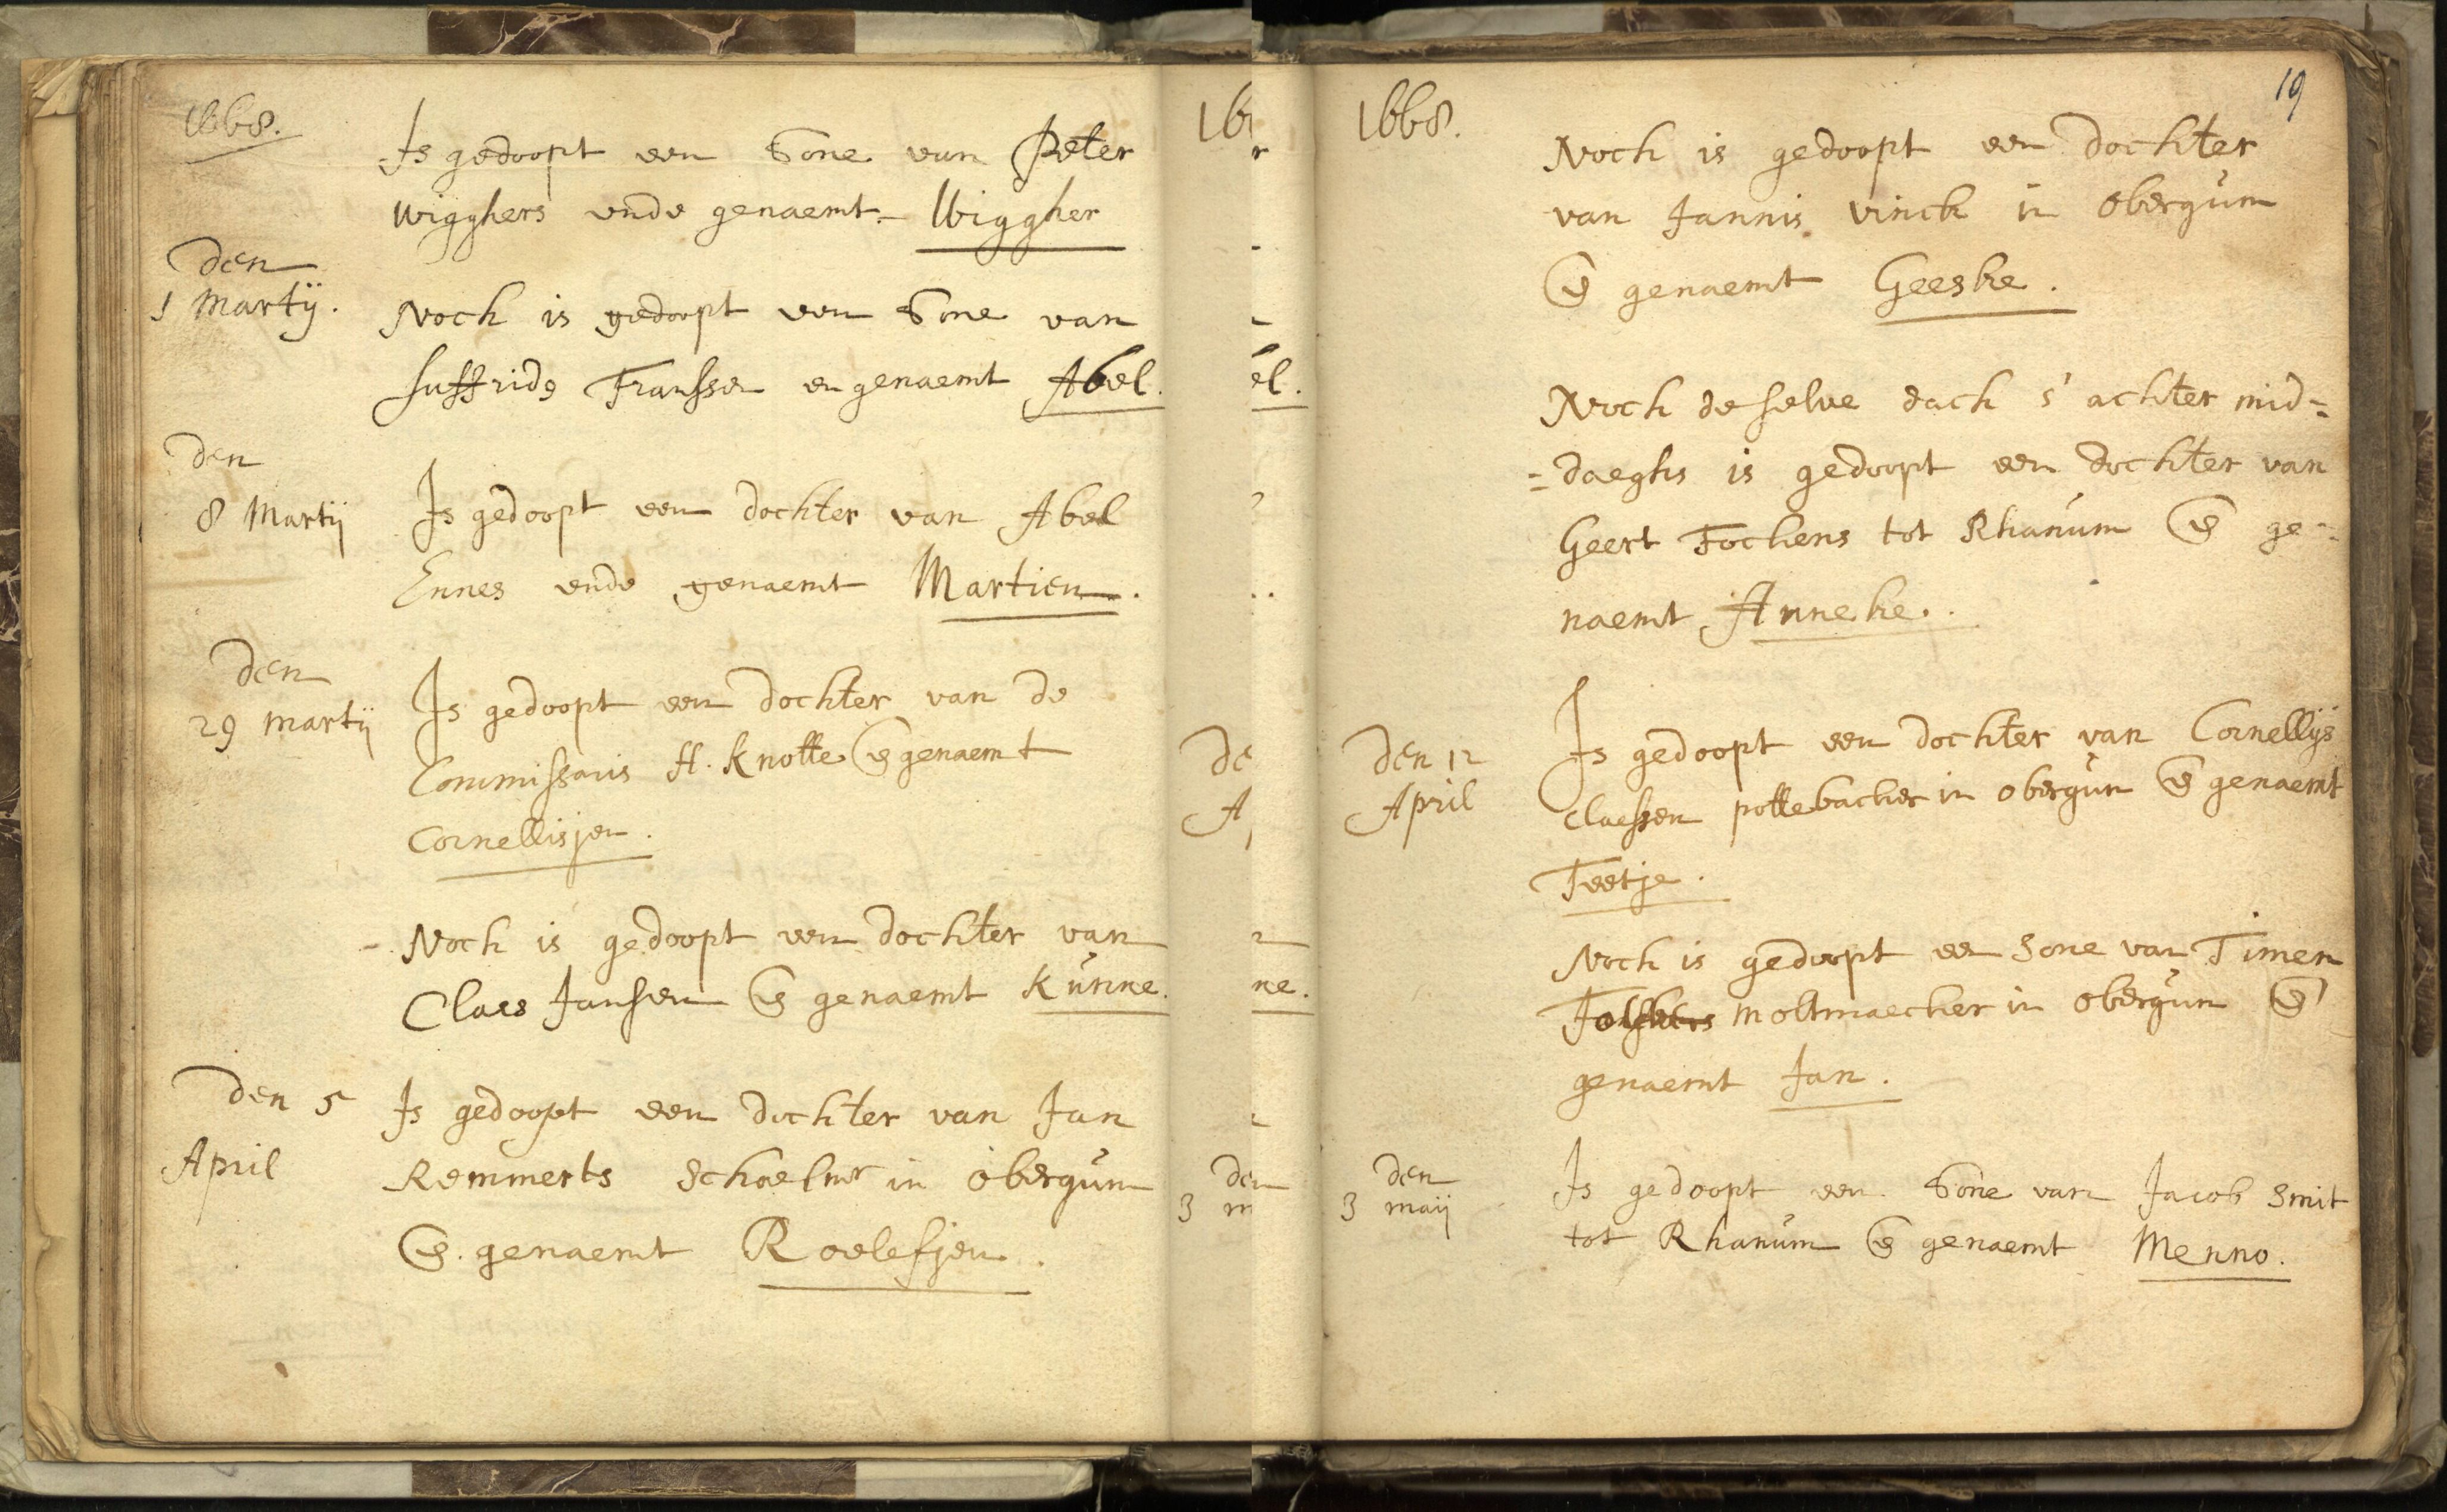 1668.
Is gedoopt een Sone van Peter
Wigghers ende genaemt Wiggher
den
1 Martij.
Noch is gedoopt een Sone van
Suffrids Franssen en genaemt Abel.
den
8 Martij
Is gedoopt een dochter van Abel
Ennes ende genaemt Martien.
den
29 martij
Is gedoopt een dochter van de
Commissaris H. Knotte en genaemt
Cornellisjen.
Noch is gedoopt een dochter van
Claes Jansen en genaemt Kunne.
den 5
April
Is gedoopt een dochter van Jan
Remmerts Schoelmr in obergum
en genaemt Roelefjen.
1668.
19
Noch is gedoopt een dochter
van Jannis vinck in obergum
en genaemt Geeske.
Noch de selve dach s' achter mid=
=daeghs is gedoopt een dochter van
Geert Fockens tot Rhanum en ge=
naemt Anneke.
den 12
April
Is gedoopt een dochter van Cornellijs
Claessen pottebacker in obergum en genaemt
Teetje.
Noch is gedoopt een Sone van Timen
moltmaecker in obergum en
genaemt Jan.
den
3 maij
Is gedoopt een Sone van Jacob Smit
tot Rhanum en genaemt Menno.